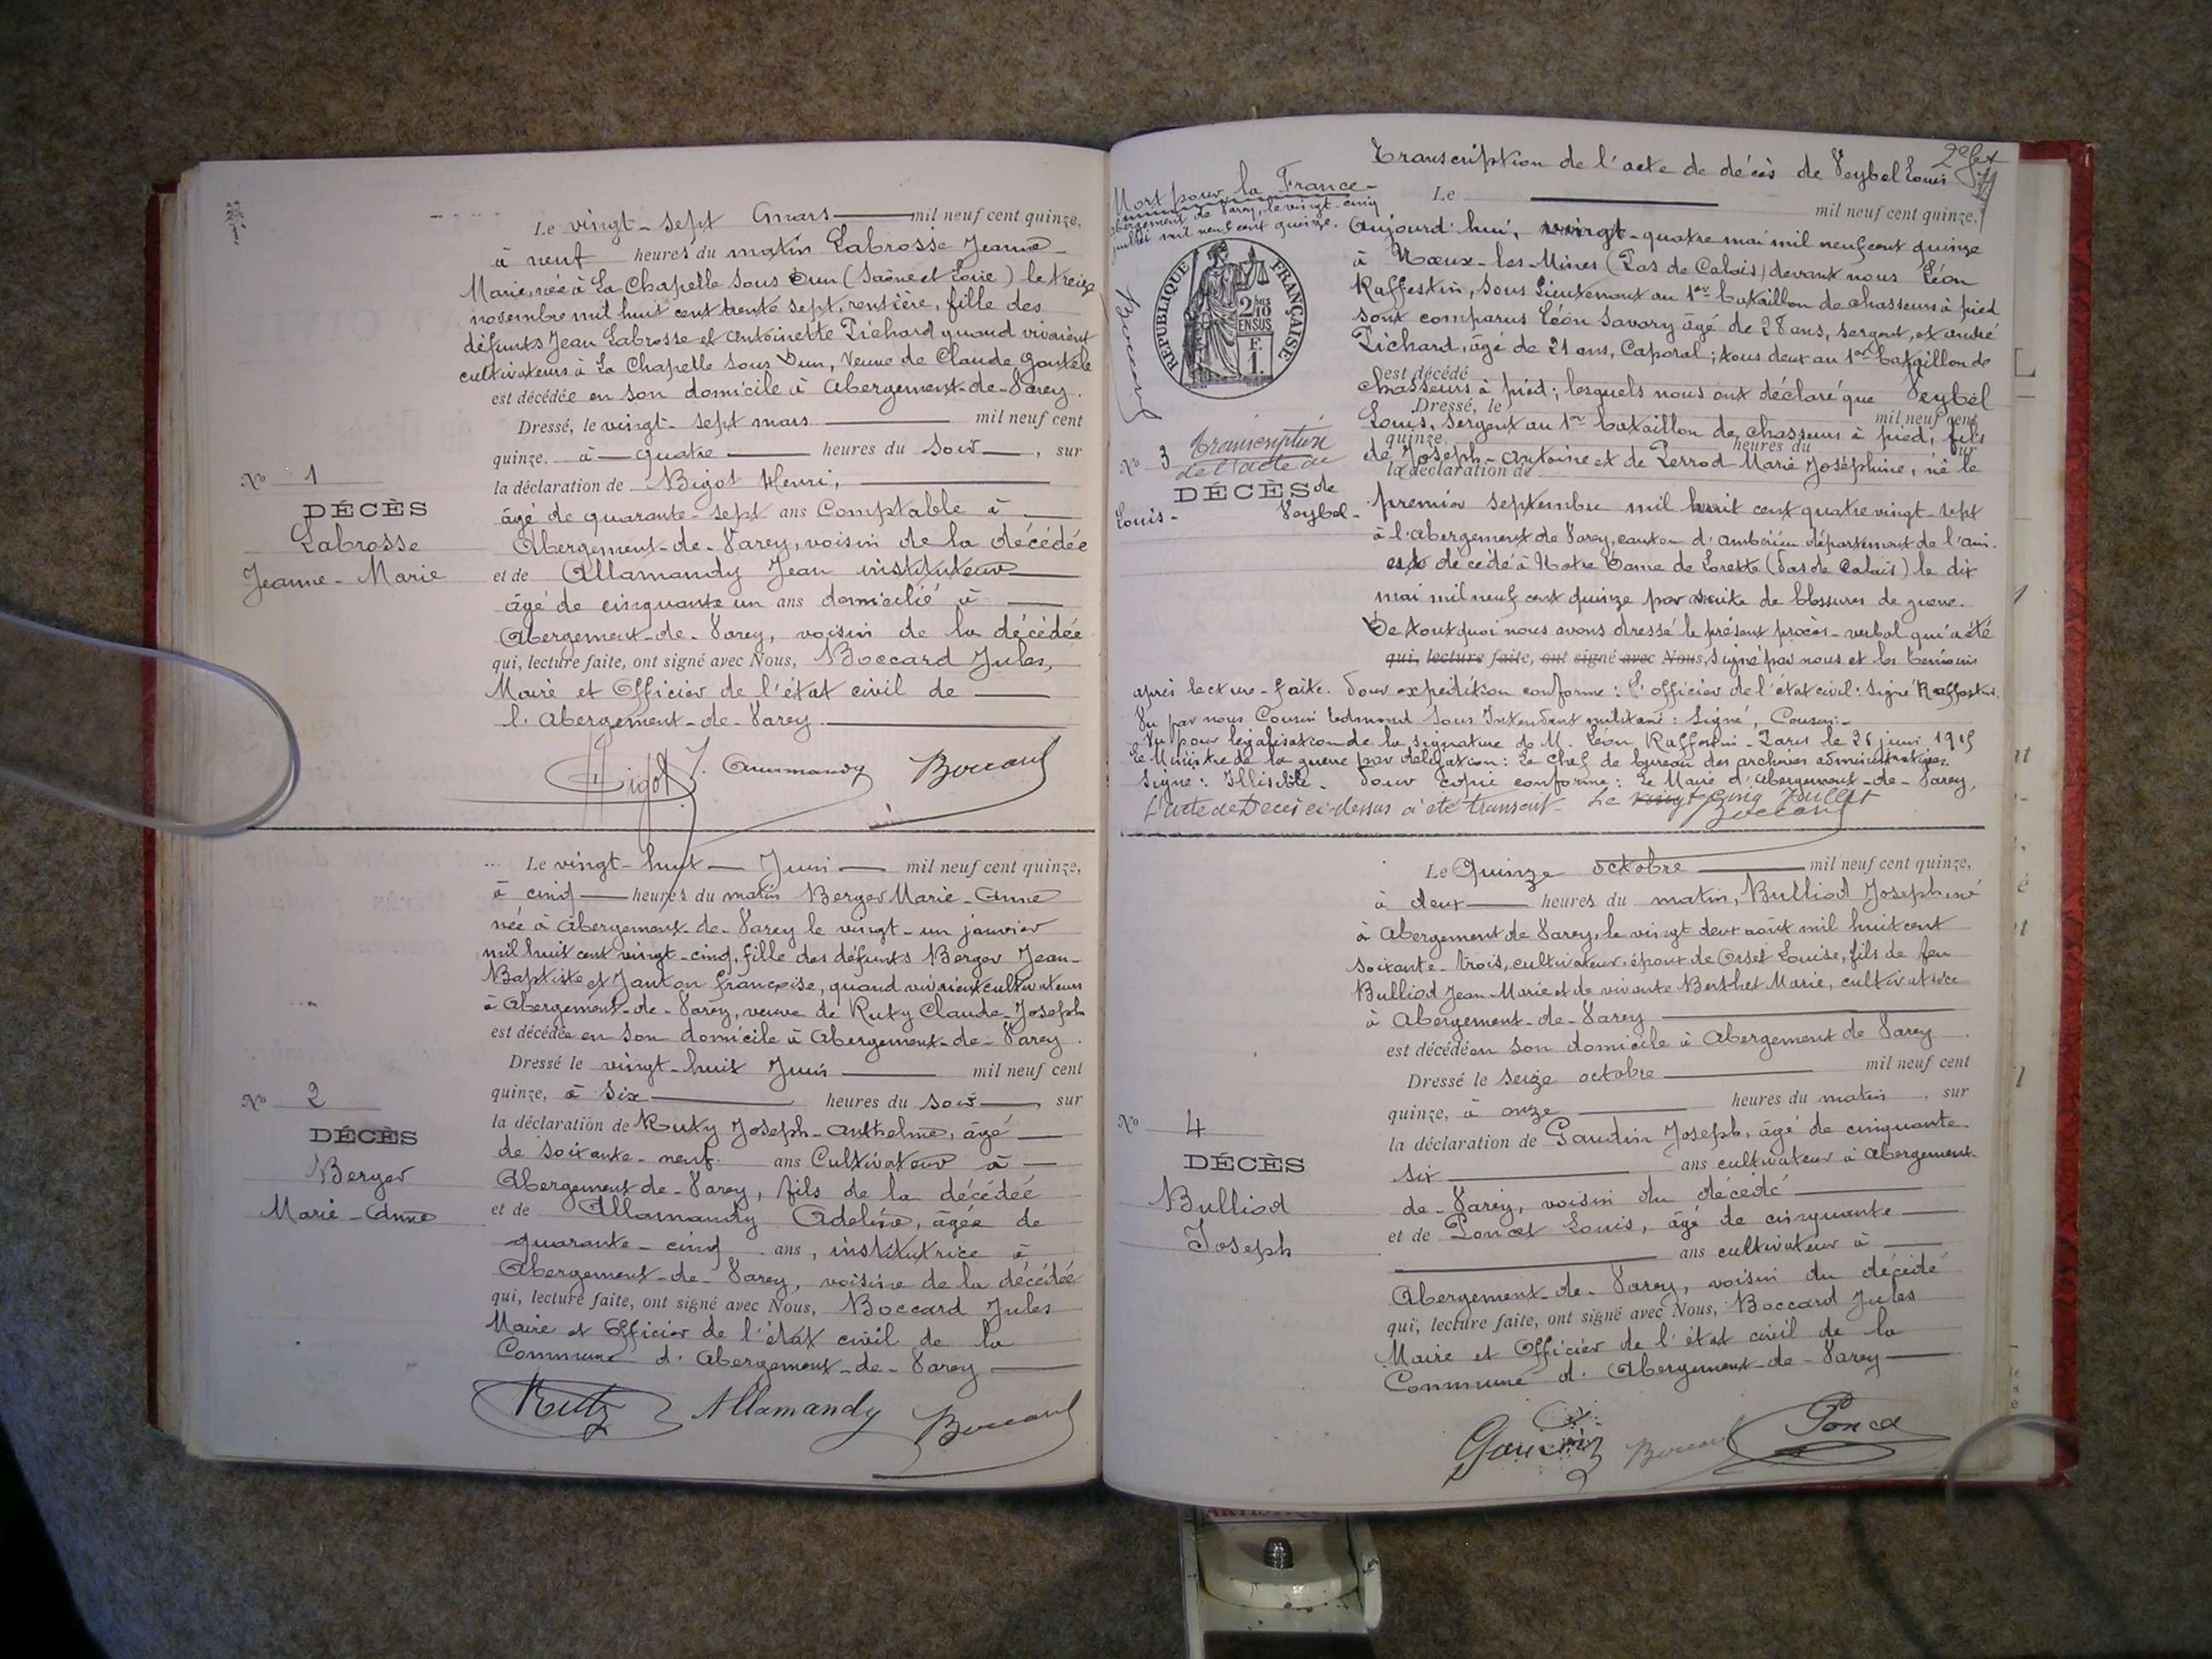 Le vingt-sept mars mil neuf cent quinze,
à neuf heures du matin Labrosse Jeanne
Marie, née à La Chapelle sous Dun (Saône et Loire) le treize
novembre mil huit cent trente sept, rentière, fille des
défunts Jean Labrosse et Antoinette Pichard quand vivaient
cultivateurs à La Chapelle sous Dun, Veuve de Claude
est décédée en son domicile à Abergement-de-Varey.
Dressé, le vingt-sept mars mil neuf cent
quinze, à quatre heures du soir, sur
la déclaration de Bigot Henri,
âgé de quarante-sept ans Comptable à
Abergement-de-Varey, voisin de la décédée
et de Allamandy Jean instituteur
âgé de cinquante un ans domicilié à
Abergement-de-Varey, voisin de la décédée
qui, lecture faite, ont signé avec Nous, Boccard Jules,
Maire et Officier de l'état civil de
l'Abergement-de-Varey.
Nº 1
DÉCÈS
Labrosse
Jeanne-Marie
HBigot J. Allamandy Boccard
Le vingt-huit Juin mil neuf cent quinze,
à cinq heures du matin Berger Marie-Anne
née à Abergement-de-Varey le vingt-un janvier
mil huit cent vingt-cinq, fille des défunts Berger Jean-
Baptiste et Janton Françoise, quand vivaient cultivateurs
à Abergement-de-Varey, veuve de Ruty Claude-Joseph
est décédée en son domicile à Abergement-de-Varey.
Dressé le vingt-huit Juin mil neuf cent
quinze, à six heures du soir, sur
la déclaration de Ruty Joseph-Anthelme, âgé
de soixante-neuf ans Cultivateur à
Abergement-de-Varey, fils de la décédée
et de Allamandy Adeline, âgée de
quarante-cinq ans, institutrice à
Abergement-de-Varey, voisine de la décédée
qui, lecture faite, ont signé avec Nous, Boccard Jules
Maire et Officier de l'état civil de la
Commune d'Abergement-de-Varey
Nº 2
DÉCÈS
Berger
Marie-Anne
Ruty Allamandy Boccard
Transcription de l'acte de décès de Veybel Louis
Mort pour la France-
Abergement de Varey, le vingt-cinq
juillet mil neuf cent quinze.
Boccard
RÉPUBLIQUE FRANÇAISE
2/10
EN SUS
F.
1.
Le mil neuf cent quinze,
Aujourd'hui, vingt-quatre mai mil neuf cent quinze
à Nœux-les-Mines (Pas de Calais) devant nous Léon
Raffestin, sous Lieutenant au 1er bataillon de chasseurs à pied
sont comparus Léon Savary âgé de 28 ans, sergent, et André
Pichard, âgé de 21 ans, Caporal; tous deux au 1er bataillon de
est décédé
chasseurs à pied; lesquels nous ont déclaré que Veybel
Dressé, le mil neuf cent
Louis, sergent au 1er bataillon de chasseurs à pied, fils
quinze, heures du sur
de Joseph-Antoine et de Perrod Marie Joséphine, né le
la déclaration de
premier septembre mil huit cent quatre vingt-sept
à l'Abergement de Varey, canton d'Ambérieu département de l'Ain.
est décédé à Notre Dame de Lorette (Pas de Calais) le dix
mai mil neuf cent quinze par suite de blessures de guerre.
De tout quoi nous avons dressé le présent procès-verbal qui a été
qui, lecture faite, ont signé avec Nous, signé par nous et les témoins
après lecture-faite. Pour expédition conforme: L'officier de l'état civil: signé Raffestin.
Vu par nous Cousin Edmond Sous Intendant militaire: Signé, Cousin.
Vu pour légalisation de la signature de M. Léon Raffestin-Paris le 26 juin 1915
Le Ministre de la guerre par délégation: Le Chef de bureau des archives administratives.
Signé: Illisible. Pour copie conforme: Le Maire d'Abergement-de-Varey,
L'acte de Décès ci-dessus a été transcrit Le vingt cinq Juillet
Boccard
Nº 3 Transcription
de l'acte de
DÉCÈS de
Louis- Veybel-
Le Quinze octobre mil neuf cent quinze,
à deux heures du matin, Bulliod Joseph né
à Abergement de Varey, le vingt deux août mil huit cent
soixante-trois, cultivateur, époux de Orset Louise, fils de feu
Bulliod Jean-Marie et de vivante Berthet Marie, cultivatrice
à Abergement-de-Varey
est décédé en son domicile à Abergement de Varey
Dressé le seize octobre mil neuf cent
quinze, à onze heures du matin, sur
la déclaration de Gaudin Joseph, âgé de cinquante
six ans cultivateur à Abergement
de-Varey, voisin du décédé
et de Poncet Louis, âgé de cinquante
ans cultivateur à
Abergement-de-Varey, voisin du décédé
qui, lecture faite, ont signé avec Nous, Boccard Jules
Maire et Officier de l'état civil de la
Commune d'Abergement-de-Varey
Nº 4
DÉCÈS
Bulliod
Joseph
Gaudin Boccard Poncet